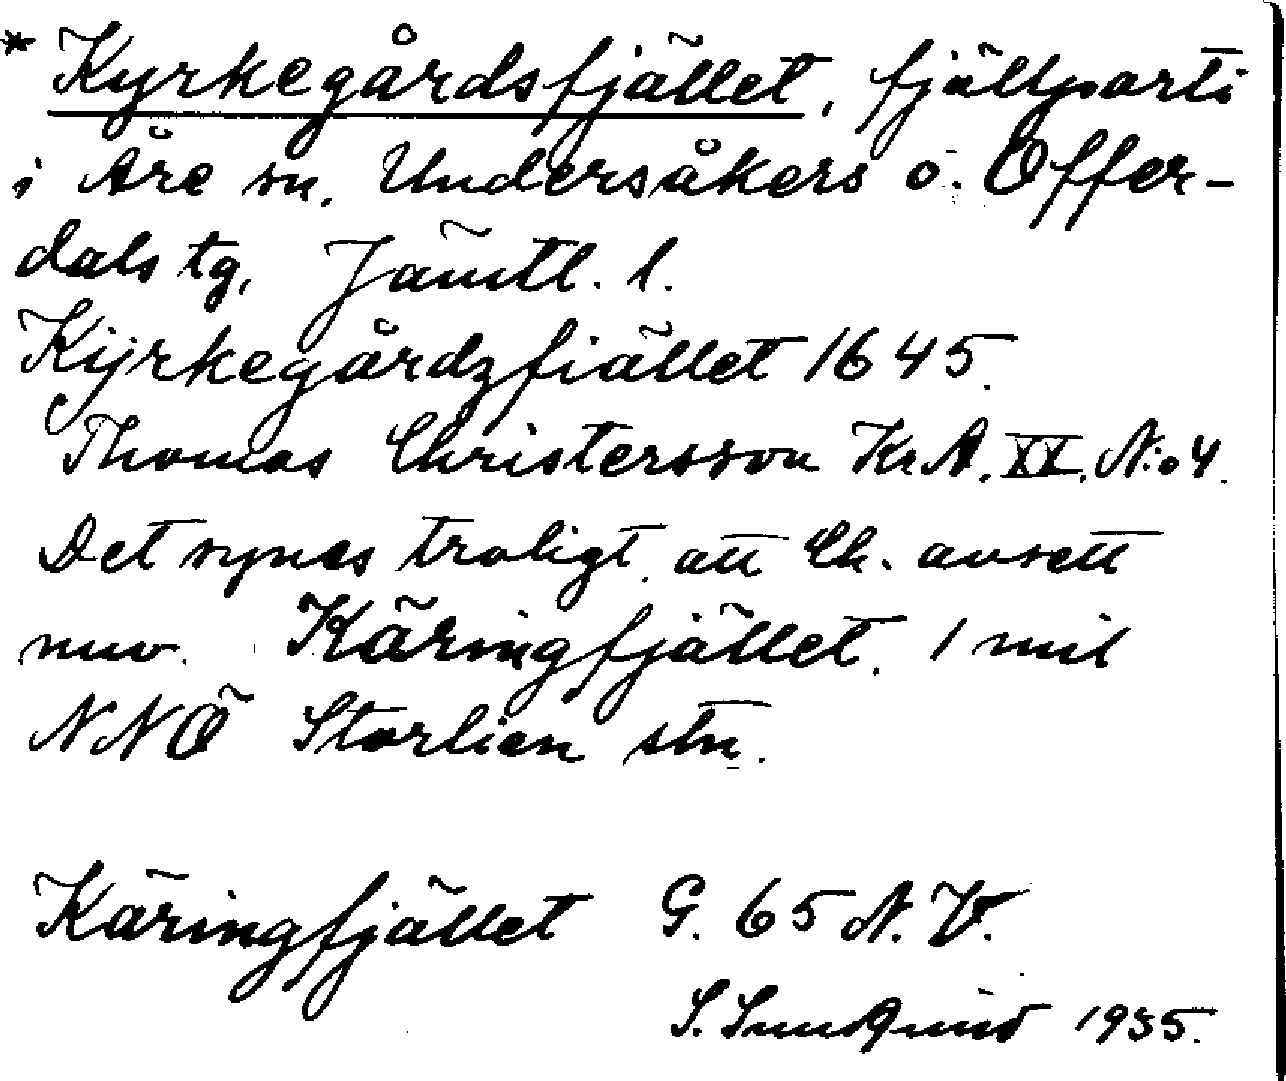 * Kyrkegårdsfjället, fjällparti
i Åre sn. Undersåkers o. Offer-
dals tg, Jämtl. l.
Kijrkegårdzfiället 1645.
Thomas Christersson Kr. A. XX. N:o 4.
Det synes troligt att Ch. avsett
nuv. Käringfjället. 1 mil
NNÖ Storlien stn.
Käringfjället G. 65 N. V.
S. 1935.